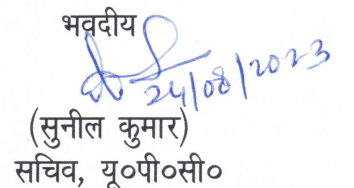 भवदीय
24/08/2023
(सुनील कुमार)
सचिव, यू०पी०सी०